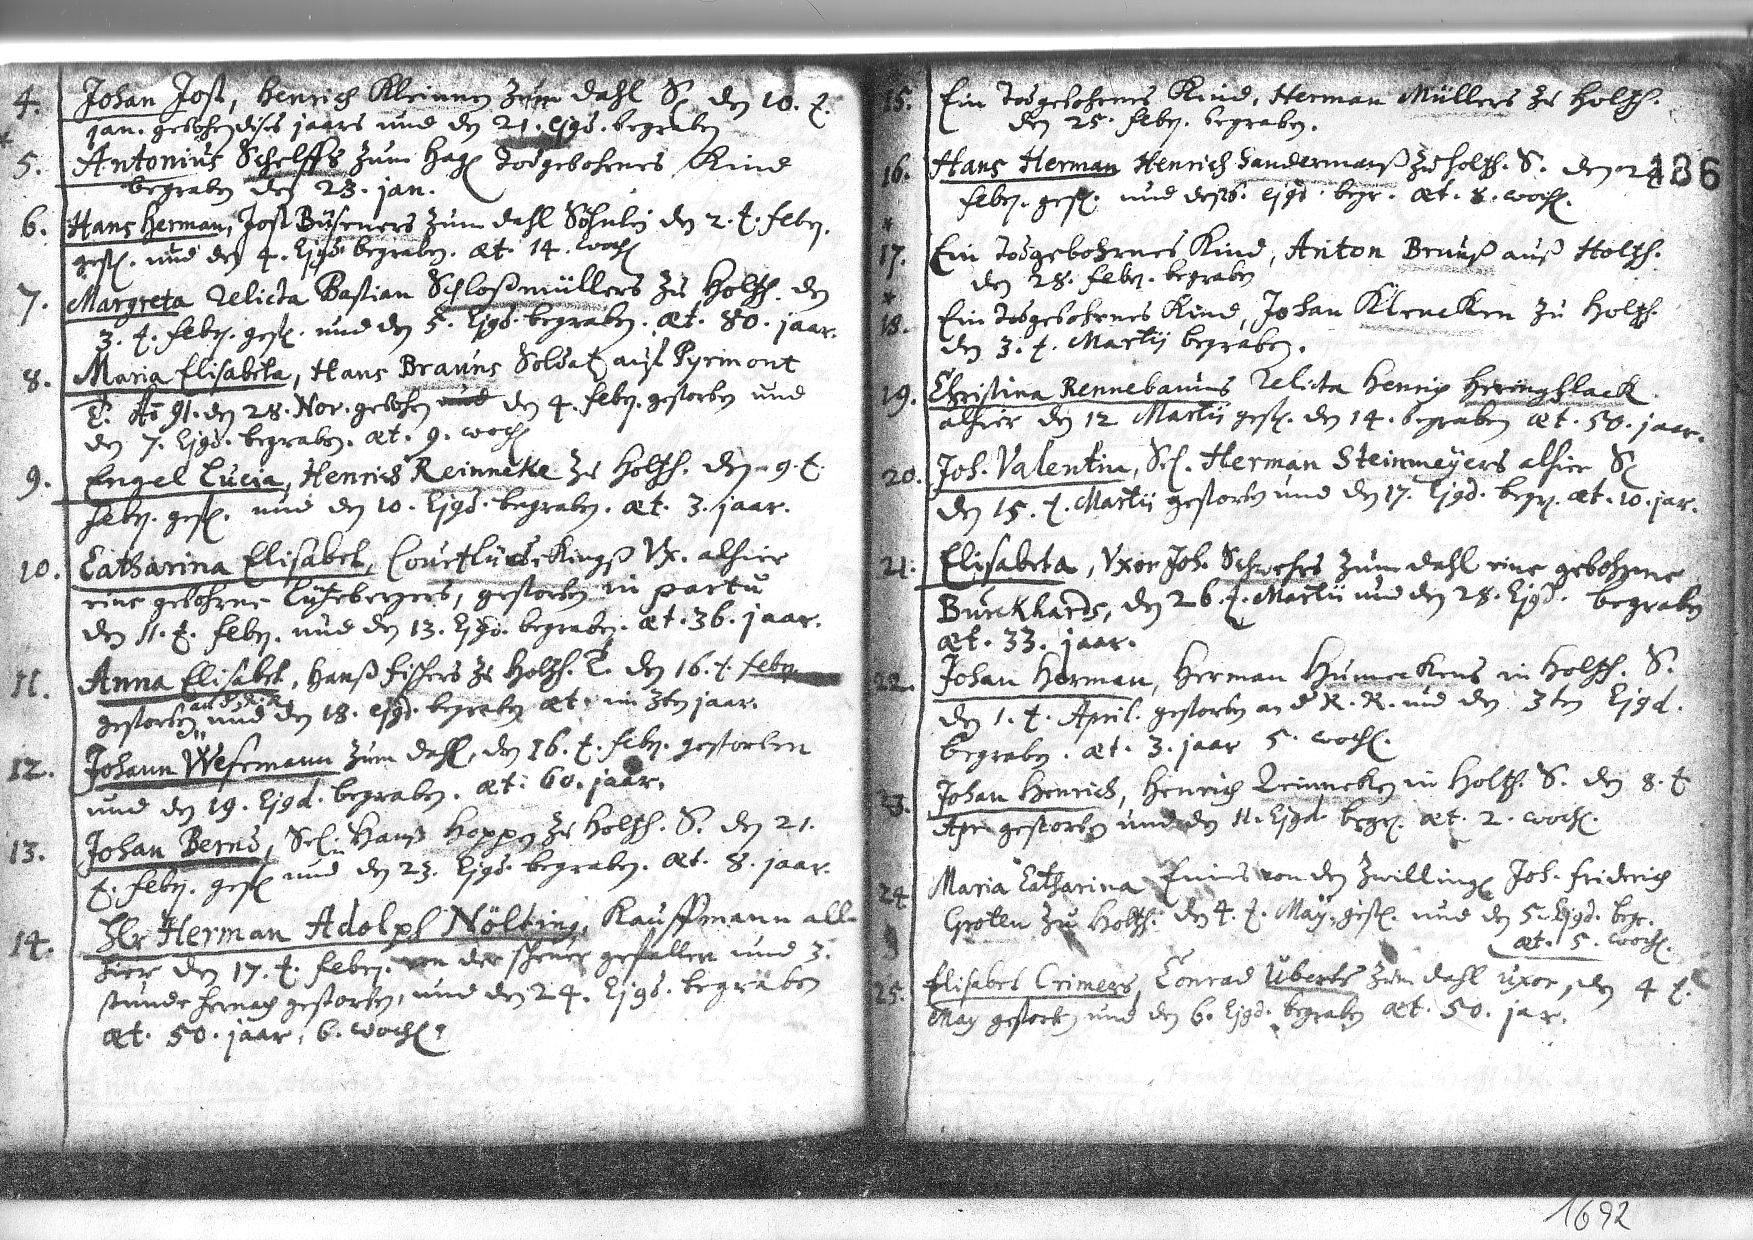 4. Johan Jost, Henrich Kleinnen zum dahl S. den 10. t.
jan. gebohren dises jaars und den 21. ejsd. begraben
5. Antonius Schelffs zum Hag todgebohrnes Kind
begraben den 23. jan.
6. Hans Herman, Jost Büseners zum dahl Söhnlein den 2. t. febr.
gest. und den 4. Ejsd begraben. æt. 14. woch
7. Margreta relicta Bastian Schloßmüllers zu Holtzh. den
3. t. febr. gest. und den 5. Ejsd. begraben. æt. 80. jaar.
8. Maria Elisabeta, Hans Brauns Soldat auß Pyrmont
T. Aō 91. den 28. Nov. gebohren und den 4. febr. gestorben und
den 7. Ejsd. begraben. æt. 9. woch
9. Engel Lucia, Henrich Reinneke zu Holtzh. den 9. t.
febr. gest. und den 10. Ejsd. begraben. æt. 3. jaar.
10. Catharina Elisabet, Ux. alhier
eine gebohrne gestorben in partu
den 11. t. febr. und den 13. Ejsd. begraben. æt. 36. jaar.
11. Anna Elisabet, Hanß Fischers zu Holtzh. T. den 16. t. febr
gestorben und den 18. ejsd. begraben æt. im 3ten jaar.
12. Johann Wesemann zum dahl, den 16. t. febr. gestorben
und den 19. Ejsd. begraben. æt. 60. jaar.
13. Johan Bernd, Sel. Hanß Hoppen zu Holtzh. S. den 21.
t. febr. gest und den 23. Ejsd. begraben. æt. 8. jaar.
14. Hr Herman Adolph Nölting, Kauffmann all-
hier den 17. t. febr. von der scheuer gefallen und 3.
stunde hernach gestorben, und den 24. Ejsd. begraben
æt. 50. jaar, 6. woch.
15. Ein todgebohrnes Kind, Herman Müllers zu Holtzh.
den 25. febr. begraben.
136
16. Hans Herman Henrich Sandermanß zu Holtzh. S. den
febr. gest. und Ejsd. begr. æt. 8. woch.
17. Ein todgebohrnes Kind, Anton Brunß auß Holtzh.
den 28. febr. begraben
18. Ein todgebohrnes Kind, Johan Kleneken zu Holtzh.
den 3. t. Martij begraben.
19. Christina Rennebaums relicta Henrich Heringslack
alhier den 12 Martij gest. den 14. begraben æt. 50. jaar.
20. Joh. Valentin, Sel. Herman Steinmeyers alhier S.
den 15. t. Martii gestorben und den 17. Ejsd. begr. æt. 10. jar.
21. Elisabeta, Uxor Joh. zum dahl eine gebohrne
Burckhards, den 26. t. Martii und den 28. Ejsd. begraben
æt. 33. jaar.
22. Johan Herman, Herman Humekens in Holtzh. S.
den 1. t. April. gestorben an d R. R. und den 3ten Ejsd.
begraben. æt. 3. jaar 5. woch.
23. Johan Henrich, Henrich Reinneken in Holtzh. S. den 8. t
Apr. gestorben und den 11. Ejsd. begr. æt. 2. woch.
24. Maria Catharina Eine von den Zwilling Joh. Friderich
Groten zu Holtzh. den 4. t. May. gest. und den 5. Ejsd. begr.
æt. 5. woch.
25. Elisabet Crimers, Conrad Überts zum dahl uxor, den 4 t.
May gestorb und den 6. Ejsd. begraben æt. 50. jar.
1692